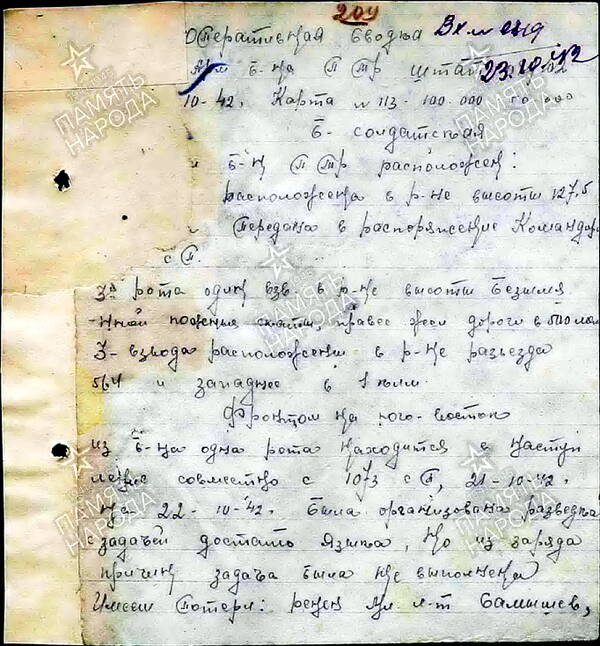 209
Оперативная сводка Вх. №
б-на ПТР штаб 23.10.42
10-42. Карта № 113 - 100.000 года
Б- солдатская
б-н ПТР расположен:
расположена в р-не высоты 127,5
Передана в распоряжение Командир
с П.
3я рота один взв. в р-не высоты Безимя
-нной южния скаты, правее жел дороги в 500
3- взвода расположены в р-не разъезда
564 и западнее в 1 клм.
Фронтом на юго-восток
из б-на одна рота находится в наступ
ление совместно с 1073 с П, 21-10-42.
На- 22-10-42. Была организована разведка
с задачей достать Языка, но из заряда
причин задача была не выполнена
Имеем Потери: ранен мл. л-т Балышев,
ПАМЯТЬ НАРОДА
ПАМЯТЬ НАРОДА
ПАМЯТЬ НАРОДА
ПАМЯТЬ НАРОДА
ПАМЯТЬ НАРОДА
ПАМЯТЬ НАРОДА